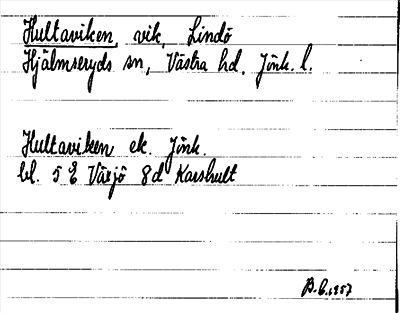 Hultaviken, vik, Lindö
Hjälmseryds sn, Västra hd. Jönk. l.
Hultaviken ek. Jönk.
bl. 5 E Växjö 8d Karshult
B.E. 1957